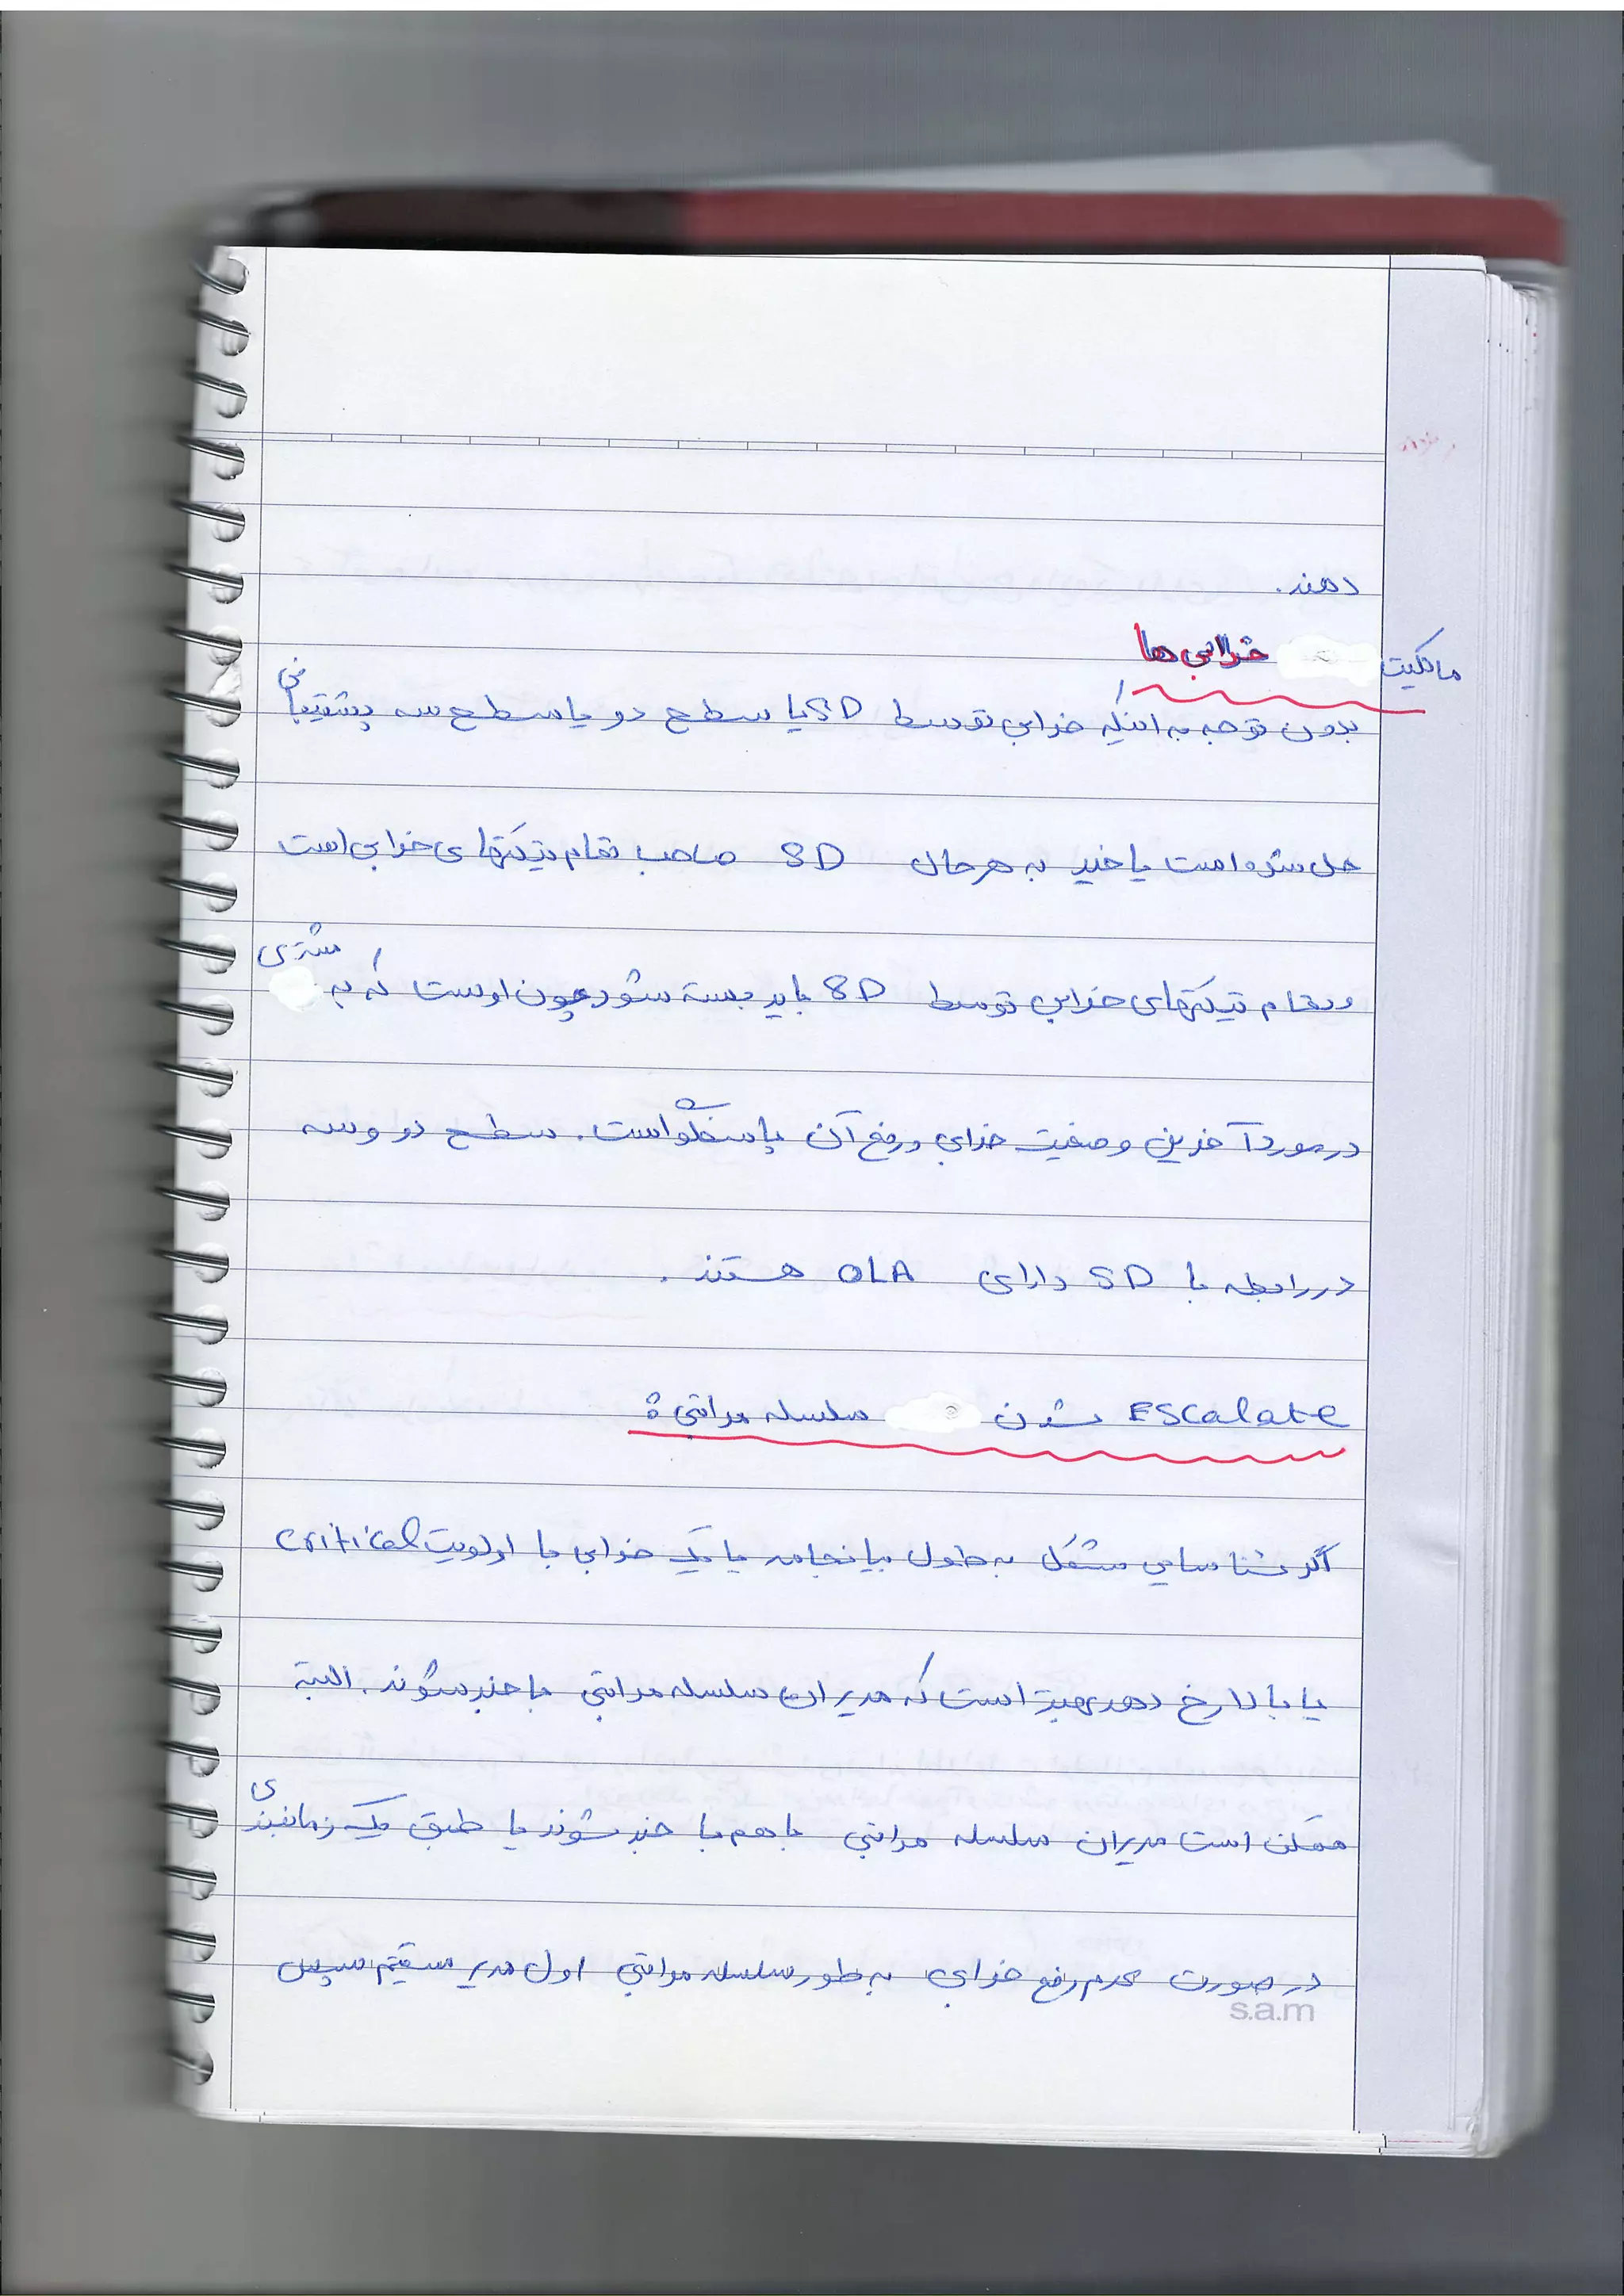 دهند.
مالکیت خرابی ها
بدون توجه به اینکه خرابی توسط SD یا سطح دو یا سطح سه پشتیبانی
حل شده است یا خیر به هر حال SD صاحب تمام تیکتهای خرابی است
و تمام تیکتهای خرابی توسط SD باید بسته شود چون اوست که به مشتری
در مورد آخرین وضعیت خرابی و رفع آن پاسخگو است. سطح دو و سه
در رابطه با SD دارای OLA هستند.
Escalate شدن سلسله مراتبی:
اگر شناسایی مشکل به طول بیانجامد یا یک خرابی با اولویت critical
یا بالا رخ دهد بهتر است که مدیران سلسله مراتبی با خبر شوند. البته
ممکن است مدیران سلسله مراتبی با هم با خبر شوند یا طبق یک زمانبندی
در صورت عدم رفع خرابی به طور سلسله مراتبی اول مدیر مستقیم سپس
s.a.m